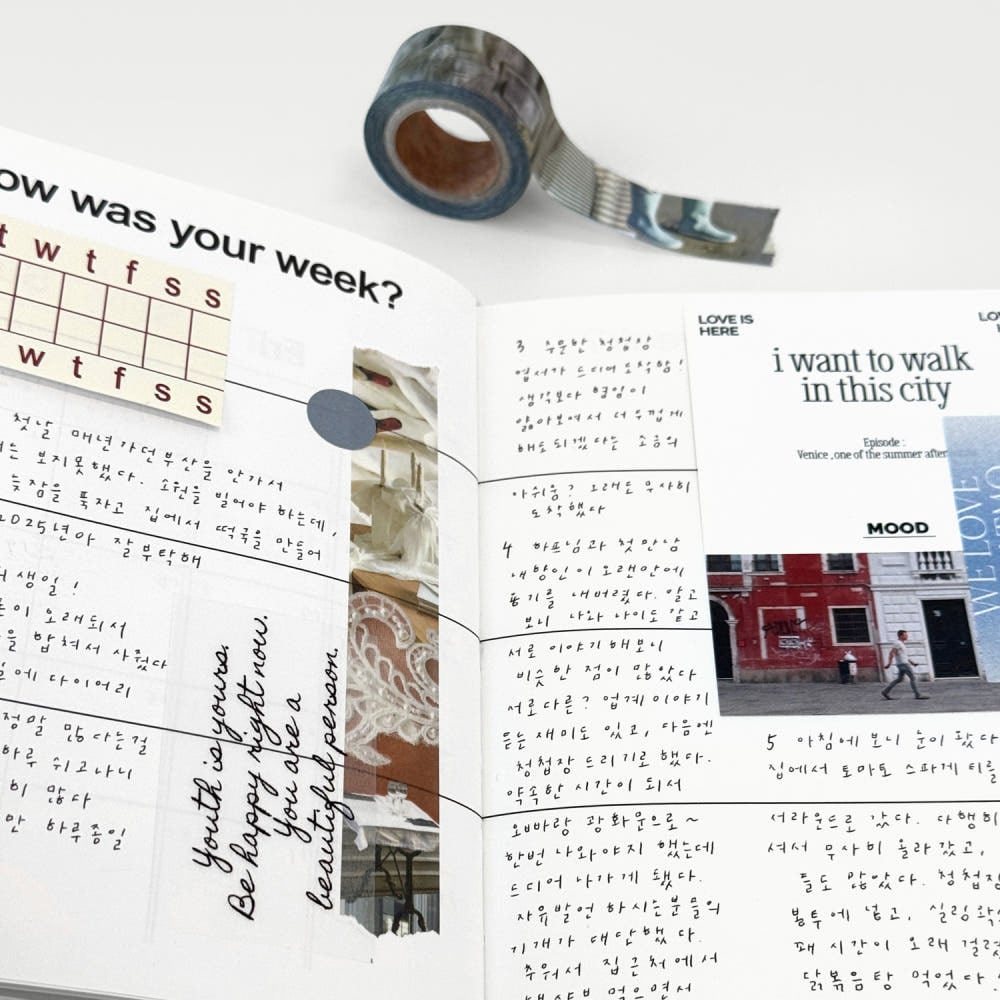 ow was your week?
t w t f s s
w t f s s
첫날 매년가던부산을 안가서
는 보지못했다. 소원을 빌어야 하는데,
늦잠을 푹자고 집에서 떡국을 만들어
2025년아 잘부탁해
생일!
이 오래되서
을 합쳐서 사줬다
에 다이어리
정말 많다는걸
하루 쉬고나니
히 많다
만 하루종일
Youth is yours.
Be happy right now.
You are a
beautiful person.
3 주문한 청첩장
엽서가 드디어 도착함!
생각보다 펄임이
얇아보여서 더두껍게
해도되겠다는 소금의
아쉬움? 그래도 무사히
도착했다
4 하프님과 첫만남
내향인이 오랜만에
용기를 내버렸다. 알고
보니 나와 나이도 같고
서로 이야기해보니
비슷한 점이 많았다
서로다른? 업계 이야기
듣는 재미도 있고, 다음엔
청첩장 드리기로 했다.
약속한 시간이 되서
오빠랑 광화문으로~
한번 나와야지 했는데
드디어 나가게 됐다.
자유발언 하시는분들의
기개가 대단했다.
추워서 집근처에서
먹으면서
LOVE IS
HERE
LO
i want to walk
in this city
Episode :
Venice ,one of the summer after
MOOD
WE LOVE
5 아침에 보니 눈이 왔다
집에서 토마토 스파게티를
서라운드로 갔다. 다행히
셔서 무사히 올라갔고,
들도 많았다. 청첩장
봉투에 넣고, 실링왁
꽤 시간이 오래 걸렸
닭볶음탕 먹었다.